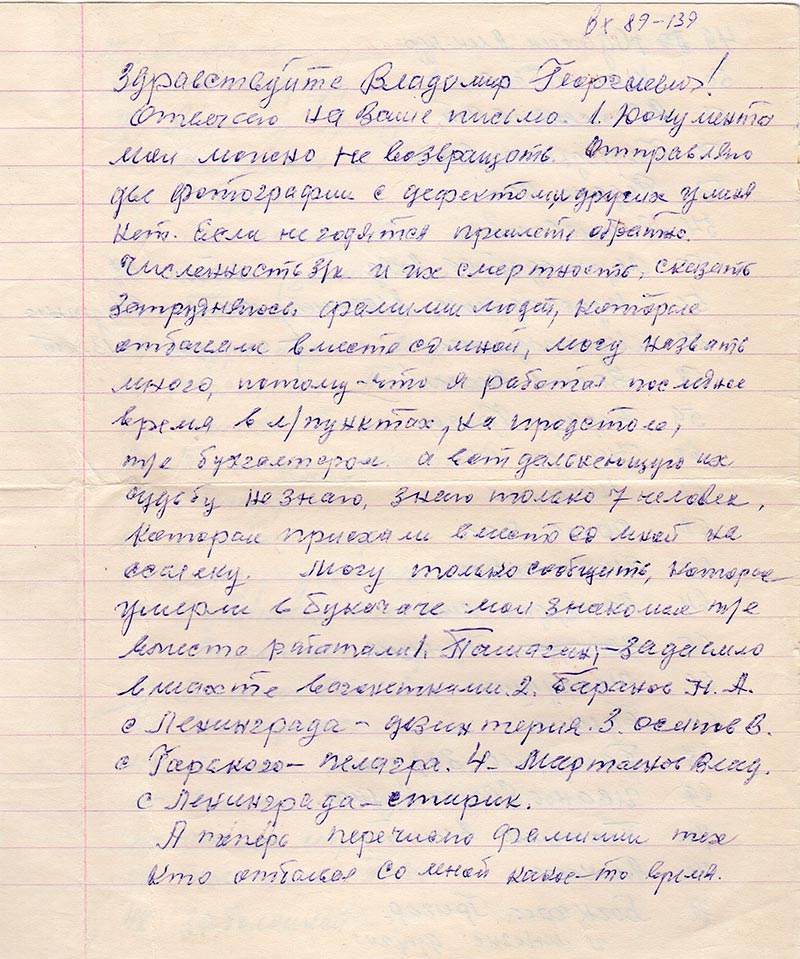 Вх 89-139
Здравствуйте Владимир Георгиевич!
Отвечаю на Ваше письмо. 1. Документы
мои можно не возвращать. Отправляю
две фотографии с дефектом, других у меня
нет. Если не годятся пришлете обратно.
Численность з/к и их смертность, сказать
затрудняюсь, фамилии людей, которые
отбывали вместе со мной, могу назвать
много, потому-что я работал последнее
время в л/пунктах, на продстоле,
т/е бухгалтером. а вот дальнейшую их
судьбу не знаю, знаю только 7 человек,
которые приехали вместе со мной на
ссылку. Могу только сообщить, которые
умерли в Букачаче мои знакомые т/е
вместе работали 1. – задавило
в шахте вагонетками. 2. Баранов Н. А.
с Ленинграда – дизинтерия. 3. Осипов В.
с – пелагра. 4 – Мартынов Влад.
с Ленинграда – старик.
А теперь перечислю фамилии тех
кто отбывал со мной какое-то время.